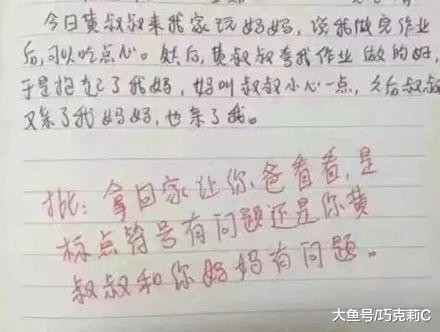 今日黄叔叔来我家玩妈妈，说我做完作业
后，可以吃点心。然后，黄叔叔夸我作业做的好，
于是抱起了我妈，妈叫叔叔小心一点，之后叔叔
又亲了我妈妈，也亲了我。
批：拿回家让你爸看看，是
标点符号有问题还是你黄
叔叔和你妈妈有问题。
大鱼号/巧克莉C